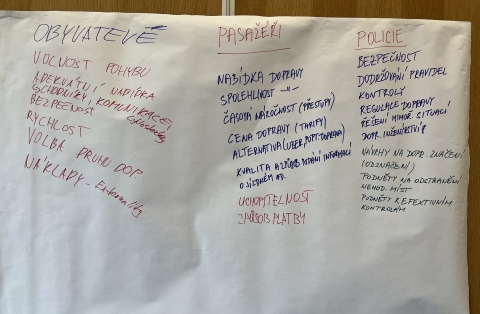 OBYVATEVÉ
VOLNOST POHYBU
ADEKVÁTNÍ NABÍDKA
BEZPEČNOST
RYCHLOST
VOLBA DRUHU DOP.
NÁKLADY - Externality
PASAŽÉŘI
NABÍDKA DOPRAVY
SPOLEHLNOST -"-
ČASOVÁ NÁROČNOST (PŘESTUPY)
CENA DOPRAVY (TARIFY)
ALTERNATIVA (UBER, POPT. DOPRAVA)
KVALITA A ZPŮSOB PODÁNÍ INFORMACÍ
O JÍZDNÍM ŘÁD.
UCHOPITELNOST
ZPŮSOB PLATBY
POLICIE
BEZPEČNOST
DODRŽOVÁNÍ PRAVIDEL
KONTROLY
REGULACE DOPRAVY
ŘEŠENÍ MIMOŘ. SITUACÍ
DOPR. INŽENÝRSTVÍ
NÁVRHY NA DOPR. ZNAČENÍ
(ODZNAČENÍ)
PODNĚTY NA ODSTRANĚNÍ
NEHOD. MÍST
PODNĚTY K EFEKTIVNÍM
KONTROLÁM